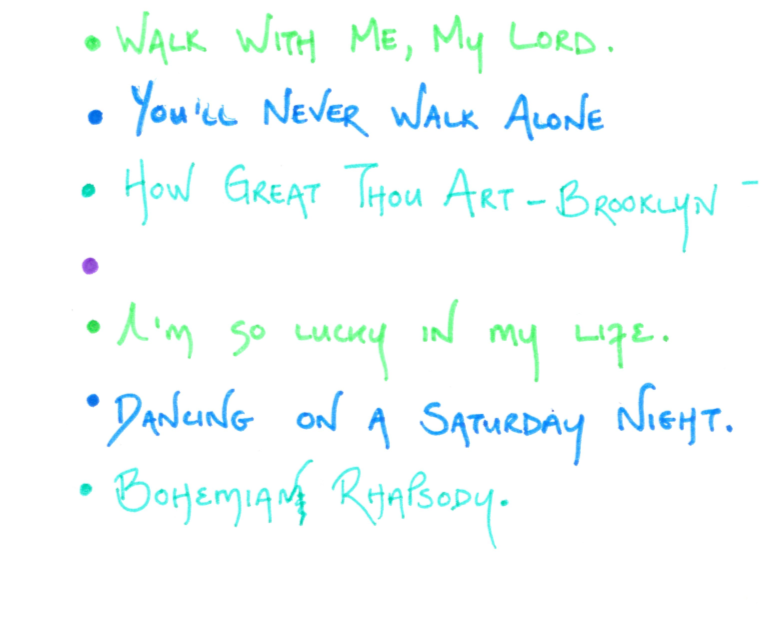 • WALK WITH ME, MY LORD.
• YOU'LL NEVER WALK ALONE
• HOW GREAT THOU ART - BROOKLYN -
•
• I'M SO LUCKY IN MY LIFE.
• DANCING ON A SATURDAY NIGHT.
• BOHEMIAN RHAPSODY.